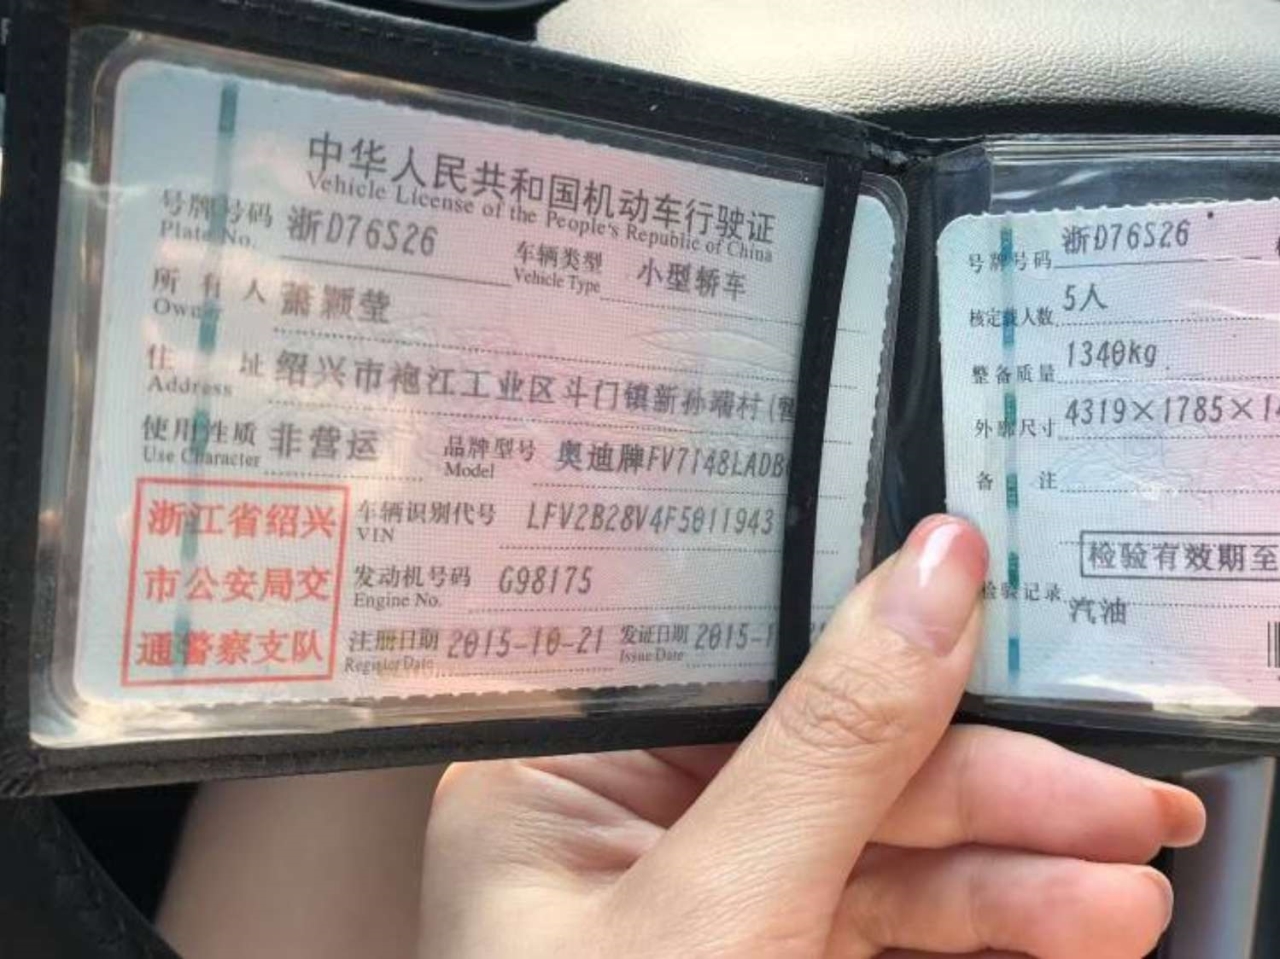 中华人民共和国机动车行驶证
Vehicle License of the People's Republic of China
号牌号码 浙D76S26 车辆类型 小型轿车
Plate No. Vehicle Type
所有人 萧颖莹
Owner
住址 绍兴市袍江工业区斗门镇新孙端村(
Address
使用性质 非营运 品牌型号 奥迪牌FV7148LADB
Use Character Model
浙江省绍兴
市公安局交
通警察支队
车辆识别代号 LFV2B28V4F5011943
VIN
发动机号码 G98175
Engine No.
注册日期 2015-10-21 发证日期 2015-1
Register Date Issue Date
号牌号码 浙D76S26
核定载人数 5人
整备质量 1340kg
外廓尺寸 4319×1785×14
备注
检验有效期至
检验记录
汽油